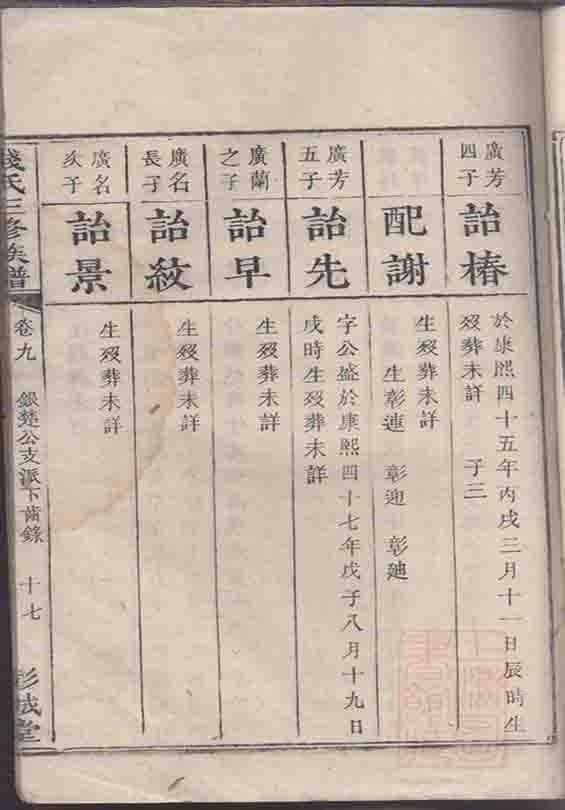 廣芳
四子
詒椿
於康熙四十五年丙戌三月十一日辰時生
歿葬未詳 子三
配謝
生歿葬未詳
生彰連 彰迎 彰廸
廣芳
五子
詒先
字公盛於康熙四十七年戊子八月十九日
戌時生歿葬未詳
廣蘭
之子
詒早
生歿葬未詳
廣名
長子
詒紋
生歿葬未詳
廣名
次子
詒景
生歿葬未詳
錢氏三修族譜
卷九
銀楚公支派下齒錄
十七
彭城堂